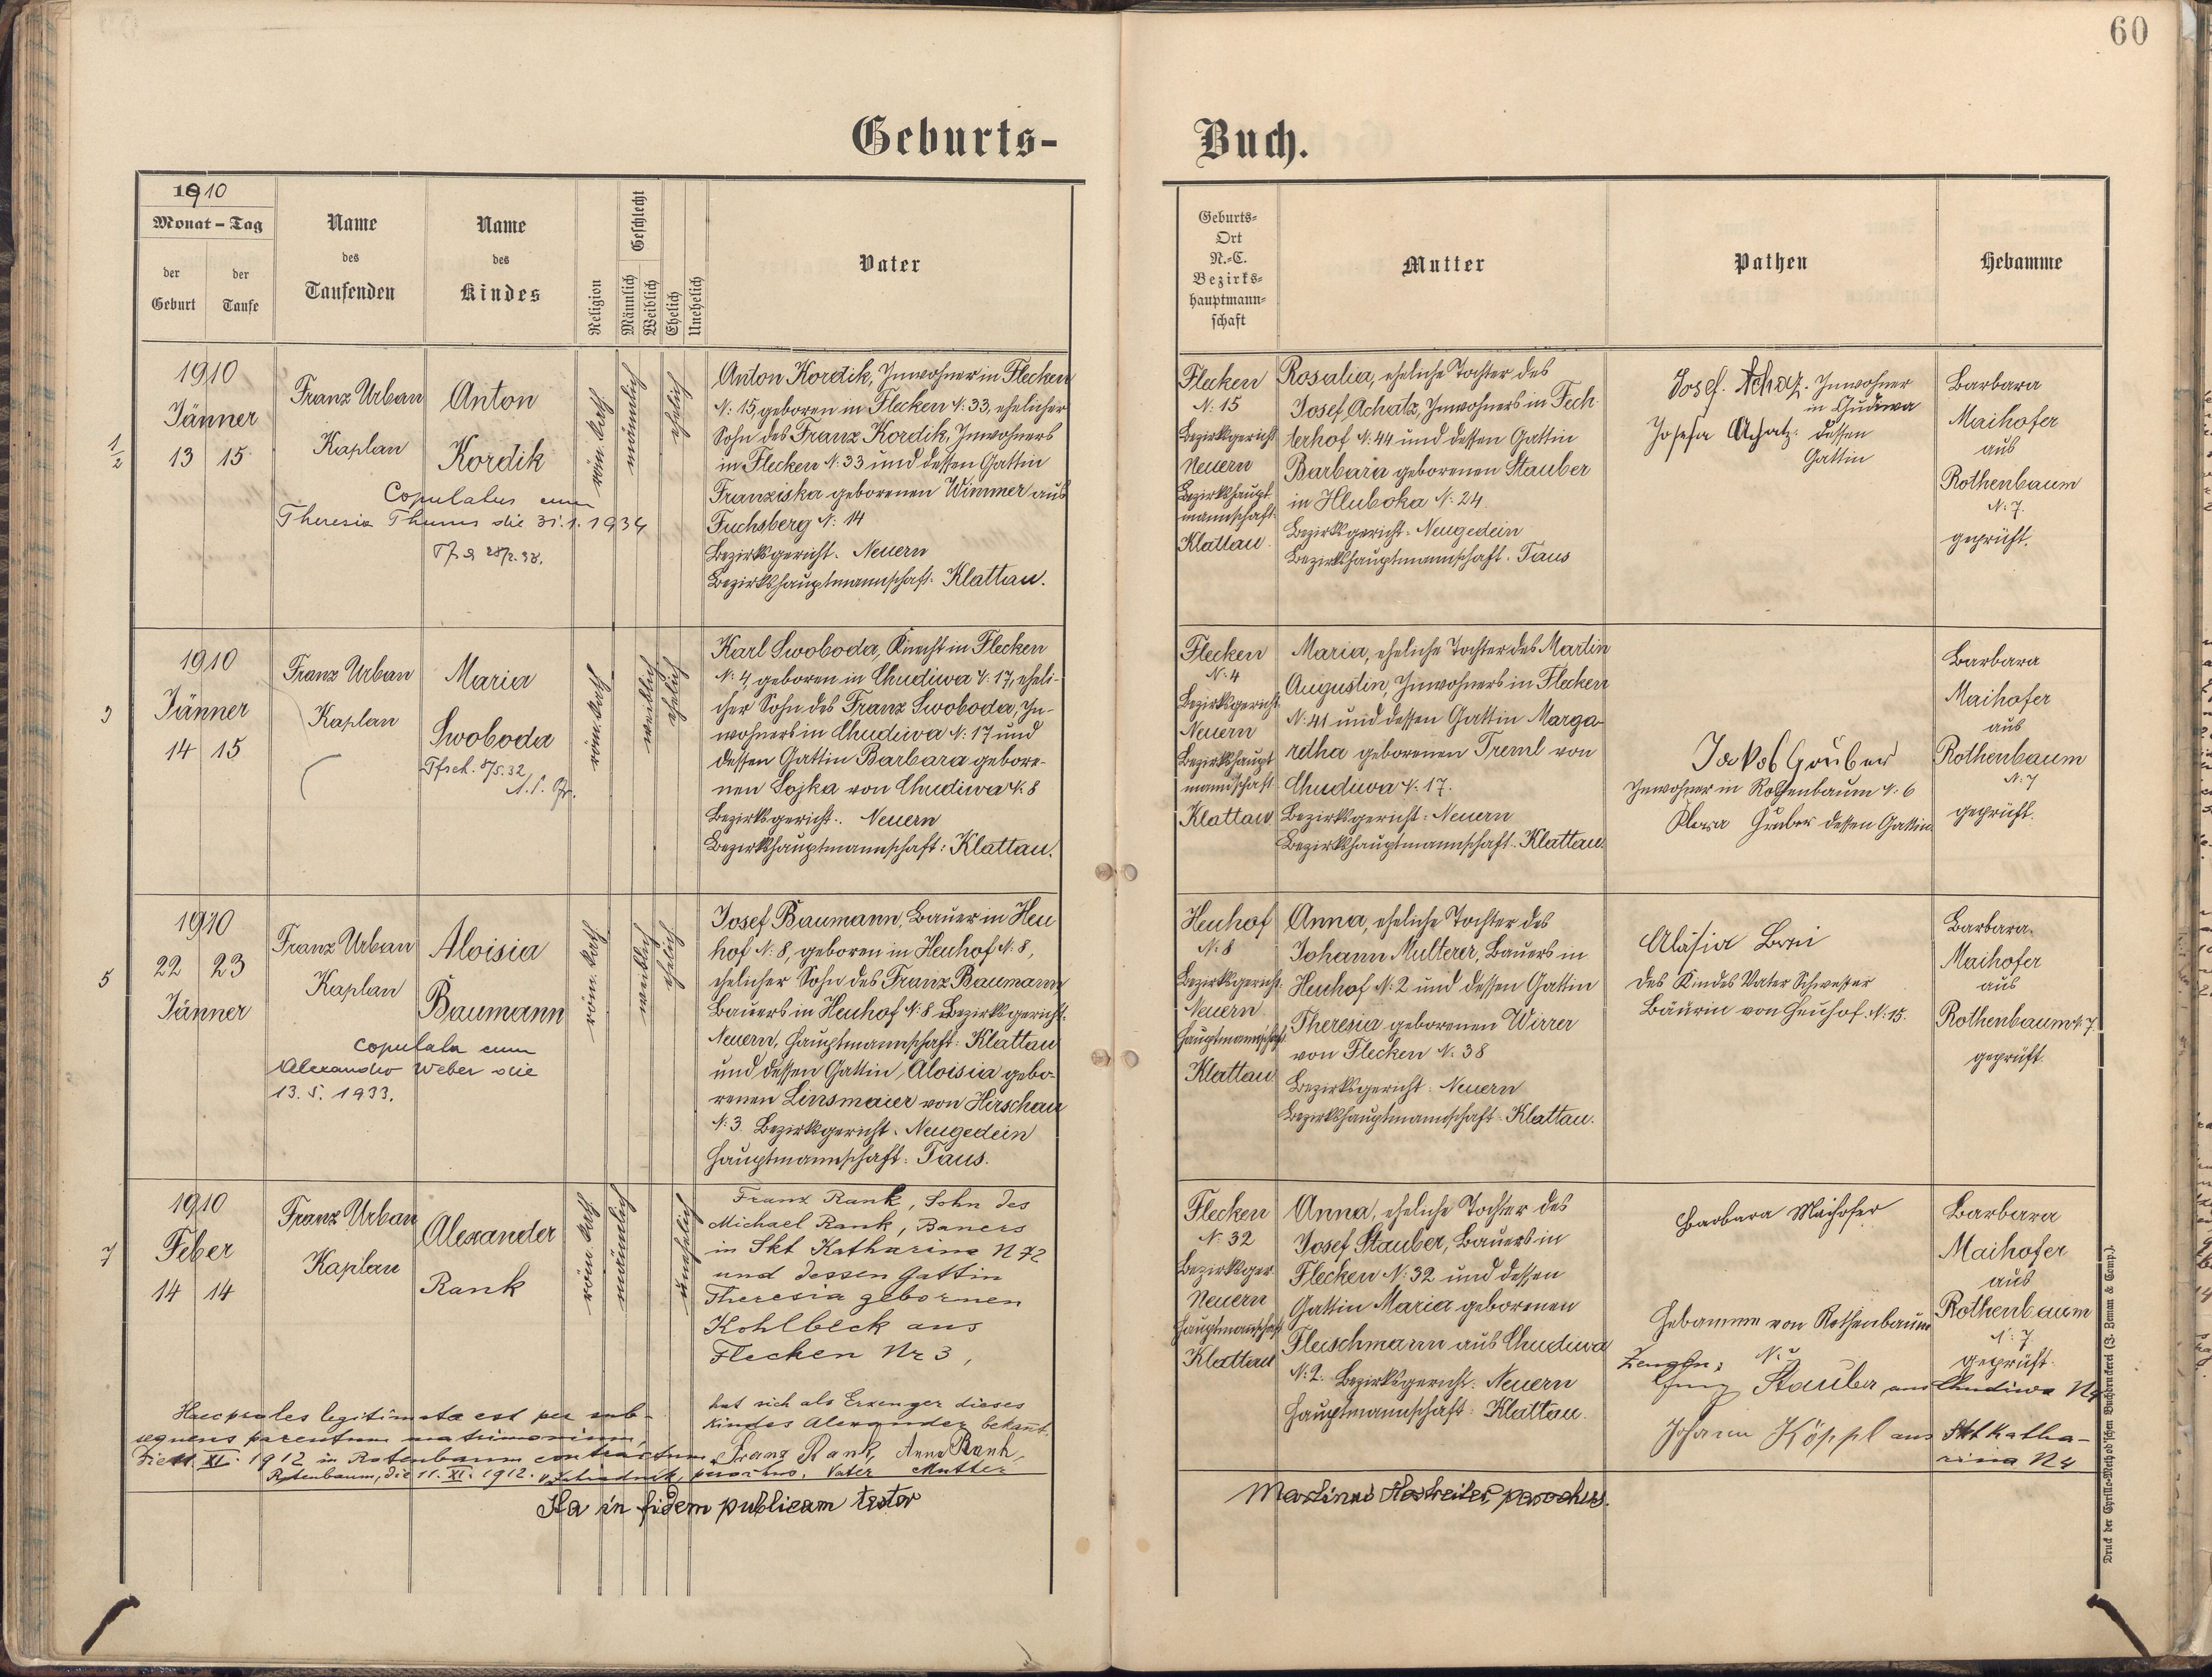 60
Geburts-
Buch.
1910
Monat – Tag
der Geburt
der Taufe
Name
des
Taufenden
Name
des
Kindes
Religion
Geschlecht
Männlich
Weiblich
Ehelich
Unehelich
Vater
Geburts-
Ort
N.-C.
Bezirks-
hauptmann-
schaft
Mutter
Pathen
Hebamme
1/2
1910
Jänner
13 15
Franz Urban
Kaplan
Anton
Kordik
Copulatus cum
Theresia Thums die 31.1.1934
röm. kath.
männlich
ehelich
Anton Kordik, Inwohner in Flecken
N: 15, geboren in Flecken N: 33, ehelicher
Sohn des Franz Kordik, Inwohners
in Flecken N: 33 und dessen Gattin
Franziska geborenen Wimmer aus
Fuchsberg N: 14
Bezirksgericht: Neuern
Bezirkshauptmannschaft: Klattau.
Flecken
N: 15
Bezirksgericht
Neuern
Bezirkshaupt
mannschaft:
Klattau.
Rosalia, eheliche Tochter des
Josef Achatz, Inwohners in Fech
terhof N: 44 und dessen Gattin
Barbara geborenen Stauber
in Hluboka N: 24.
Bezirksgericht: Neugedein
Bezirkshauptmannschaft: Taus
Josef Achatz. Inwohner
in Chudiwa
Josefa Achatz. dessen
Gattin
Barbara
Maihofer
aus
Rothenbaum
N: 7.
geprüft.
3
1910
Jänner
14 15
Franz Urban
Kaplan
Maria
Swoboda
Tfsch. 8/5.32
röm. kath.
weiblich
ehelich
Karl Swoboda, Knecht in Flecken
N: 4, geboren in Chudiwa N: 17, eheli-
cher Sohn des Franz Swoboda, In-
wohners in Chudiwa N: 17 und
dessen Gattin Barbara gebore-
nen Sojka von Chudiwa N: 8
Bezirksgericht: Neuern
Bezirkshauptmannschaft: Klattau.
Flecken
N: 4
Bezirksgericht
Neuern
Bezirkshaupt
mannschaft
Klattau
Maria, eheliche Tochter des Martin
Augustin, Inwohners in Flecken
N: 41 und dessen Gattin Marga-
retha geborenen Treml von
Chudiwa N: 17.
Bezirksgericht: Neuern
Bezirkshauptmannschaft: Klattau.
Jakob Gruber
Inwohner in Rothenbaum N: 6
Gruber dessen Gattin
Barbara
Maihofer
aus
Rothenbaum
N: 7
geprüft.
5
1910
22 23
Jänner
Franz Urban
Kaplan
Aloisia
Baumann
copulata cum
Alexandro Weber die
13. 5. 1933.
röm. kath.
weiblich
ehelich
Josef Baumann, Bauer in Heu
hof N: 8, geboren in Heuhof N: 8,
ehelicher Sohn des Franz Baumann
Bauers in Heuhof N: 8 Bezirksgericht:
Neuern, Hauptmannschaft: Klattau
und dessen Gattin Aloisia gebo-
renen Linsmaier von Hirschau
N: 3. Bezirksgericht: Neugedein
Hauptmannschaft: Taus.
Heuhof
N: 8
Bezirksgericht:
Neuern
Hauptmannschaft
Klattau
Anna, eheliche Tochter des
Johann Multerer, Bauers in
Heuhof N: 2 und dessen Gattin
Theresia geborenen Wirrer
von Flecken N: 38
Bezirksgericht: Neuern
Bezirkshauptmannschaft: Klattau.
des Kindes Vater Schwester
Bäurin von Heuhof N: 15.
Barbara.
Maihofer
aus
Rothenbaum N: 7
geprüft.
7
1910
Feber
14 14
Franz Urban
Kaplan
Alexander
Rank
röm. kath.
männlich
unehelich
Franz Rank, Sohn des
Michael Rank, Bauers
in Skt Katharina N 72
und dessen Gattin
Theresia gebornen
Kohlbeck aus
Flecken Nr 3,
hat sich als Erzeuger dieses
Kindes Alexander bekannt.
Franz Rank, Anna Rank,
Vater Mutter
Haec proles legitimata est per sub-
sequens parentum matrimonium
die 11. XI. 1912 in Rotenbaum contractum
Rotenbaum, die 11. XI. 1912. parochus.
Flecken
N: 32
Bezirksger
Neuern
Hauptmannschaft
Klattau
Anna, eheliche Tochter des
Josef Stauber, Bauers in
Flecken N: 32 und dessen
Gattin Maria geborenen
Fleischmann aus Chudiwa
N: 2. Bezirksgericht: Neuern
Hauptmannschaft: Klattau.
Barbara Maihofer
Hebamme von Rothenbaum
Zeugen:
Stauber aus Chudiwa
Johann Köppl aus Skt Katha-
rina N 4
Barbara
Maihofer
aus
Rothenbaum
N: 7
geprüft.
Ita in fidem publicam testor
Martinus parochus.
Druck der Cyrillo-Method'schen Buchdruckerei (J. Zeman & Comp.).